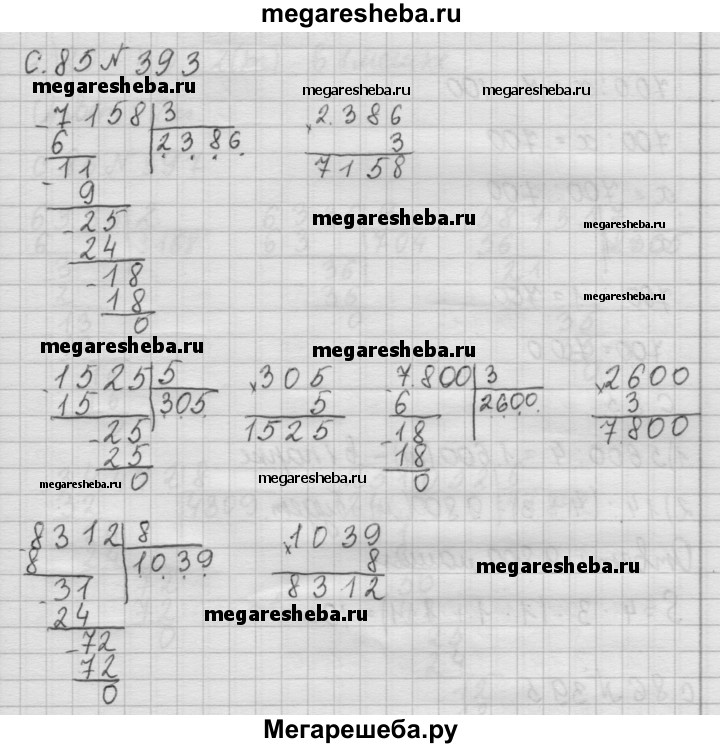 megaresheba.ru
С. 85 № 393
megaresheba.ru megaresheba.ru megaresheba.ru
- 7158 | 3
6 | 2386
11
- 9
- 25
24
- 18
18
0
× 2386
3
7158
megaresheba.ru
megaresheba.ru
megaresheba.ru
megaresheba.ru megaresheba.ru
- 1525 | 5
15 | 305
- 25
25
0
× 305
5
1525
- 7800 | 3
6 | 2600
- 18
18
0
× 2600
3
7800
megaresheba.ru megaresheba.ru
megaresheba.ru
- 8312 | 8
8 | 1039
- 31
24
- 72
72
0
× 1039
8
8312
megaresheba.ru
megaresheba.ru
Мегарешеба.ру